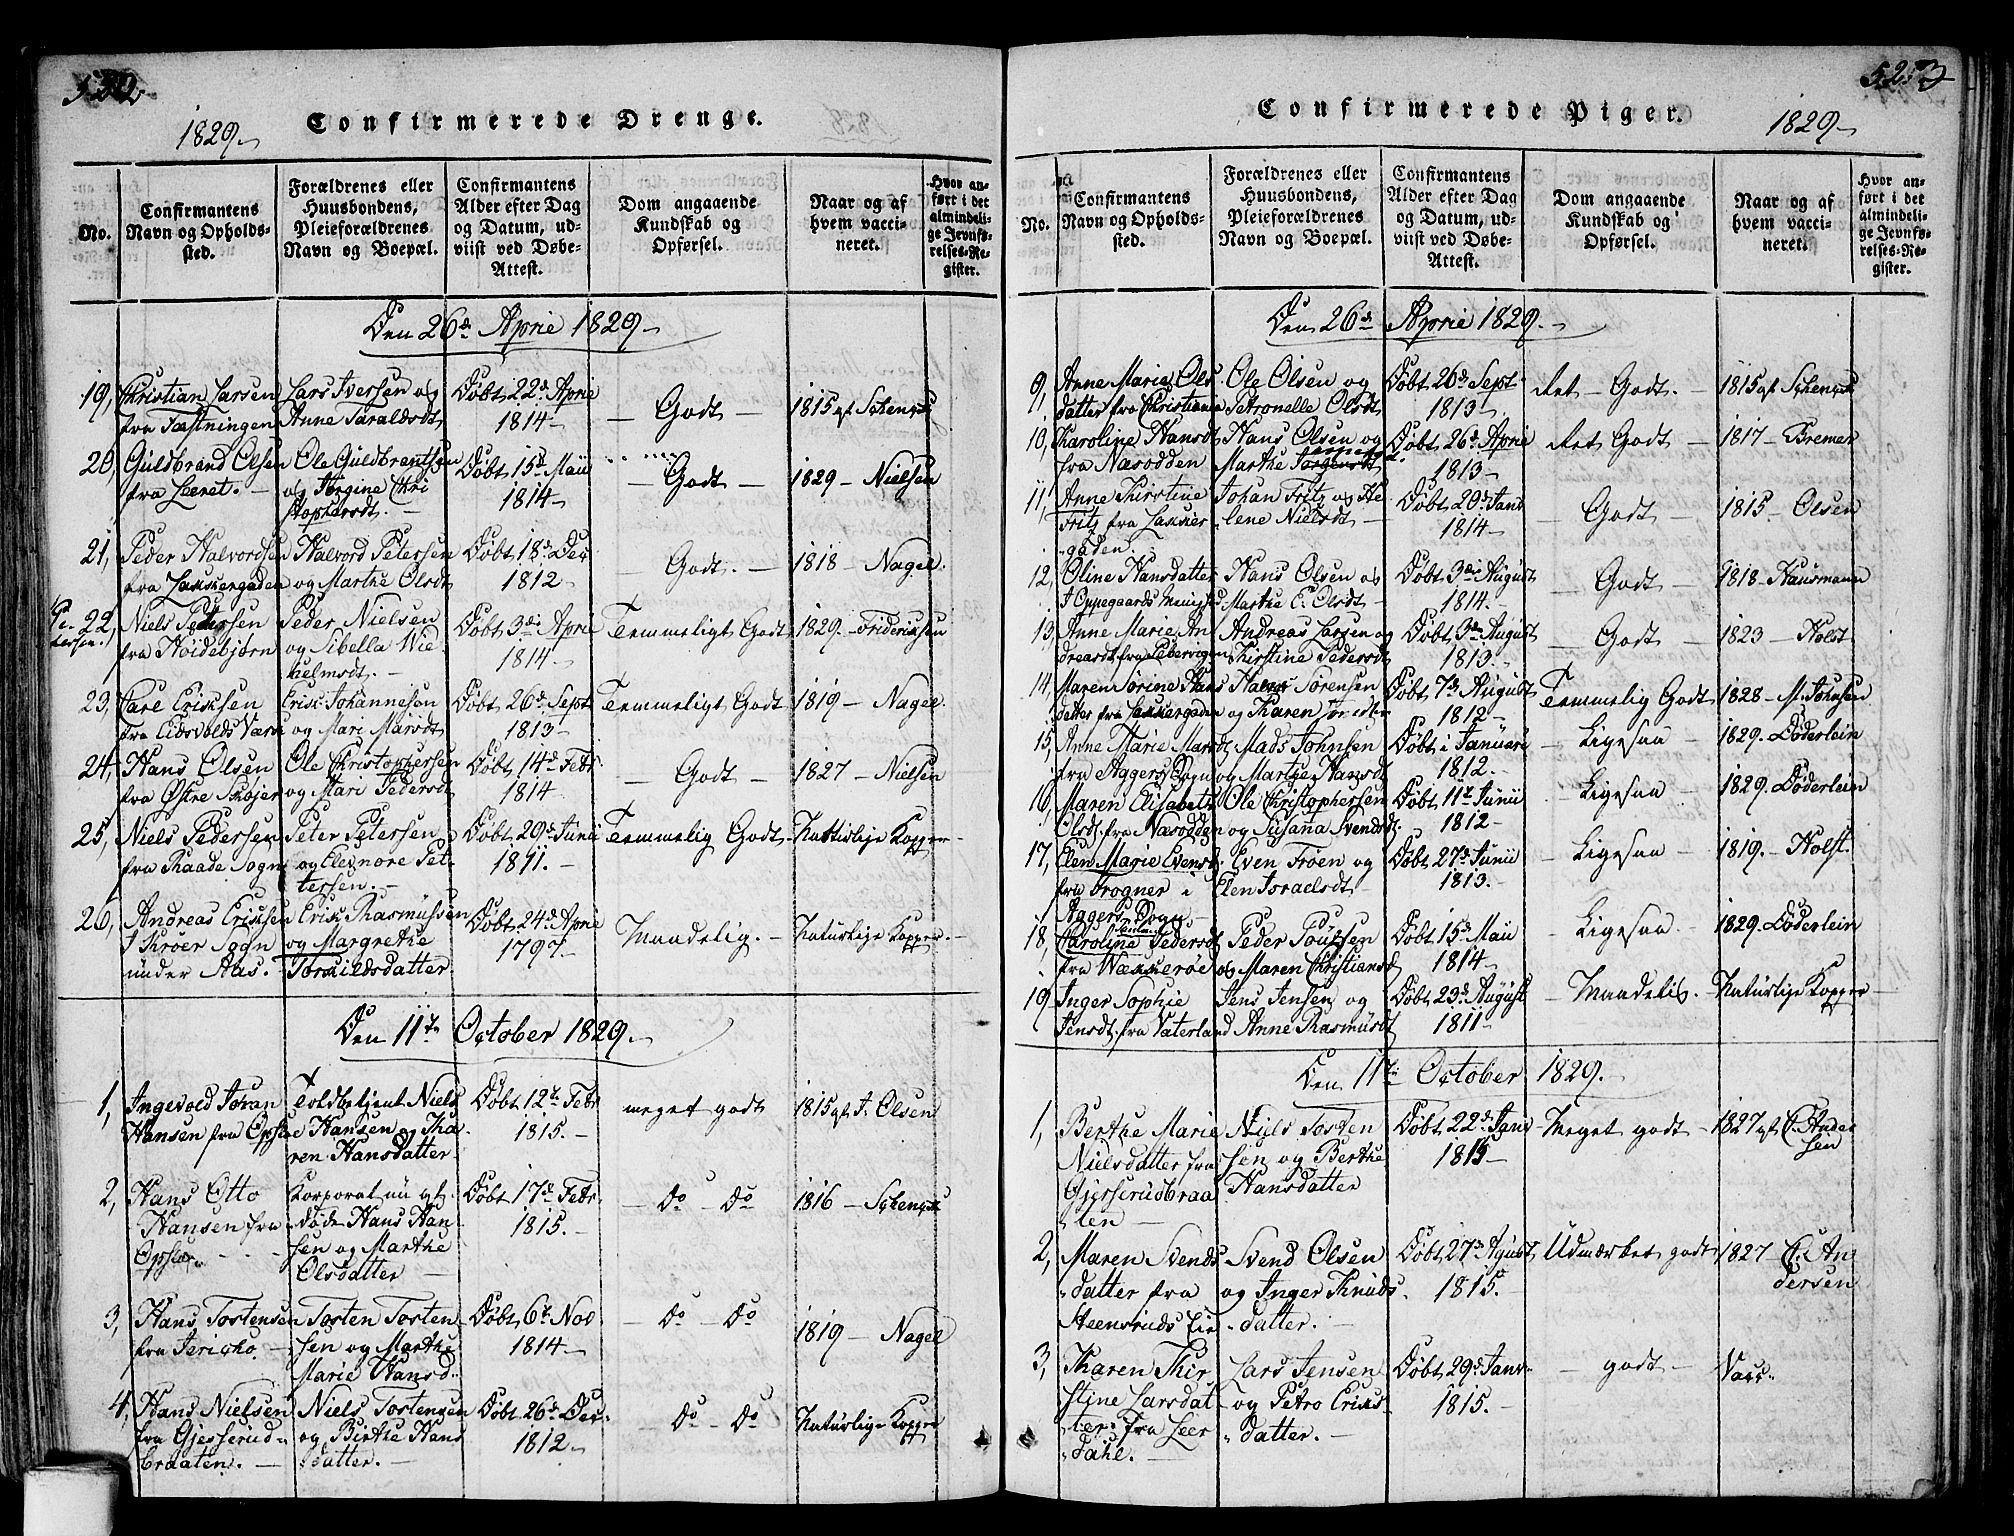 522
1829.
Confirmerede Drenge.
No.
Confirmantens Navn og Opholdssted.
Forældrenes eller Huusbondens, Pleieforældrenes Navn og Boepæl.
Confirmantens Alder efter Dag og Datum, udviist ved Døbe-Attest.
Dom angaaende Kundskab og Opførsel.
Naar og af hvem vaccineret.
Hvor anført i det almindelige Jevnførelses-Register.
Den 26de April 1829
19, Christian Larsen fra Fæstningen
Lars Iversen og Anne Taraldsdt
Døbt 22d April 1814
Godt
1815 af Schenck
20, Guldbrand Olsen fra Leeret.
Ole Guldbrantsen og Jørgine Christophersdt.
Døbt 15d Maii 1814
Godt
1829 - Nielsen
21, Peder Halvordsen fra Lakkergaden
Halvord Petersen og Marthe Olsdt
Døbt 18d Dec 1812
Godt.
1818 - Nagel.
22, Niels Petersen fra Hoidebjørn
Petersen.
Peder Nielsen og Sibella Wilhelmsdt.
Døbt 3di April 1814
Temmeligt Godt
1829. - Frideriksen
23, Carl Eriksen fra Eidsvolds Værk
Erik Johannesen og Mari Marsdt
Døbt 26d Sept 1813
Temmeligt Godt
1819 - Nagel.
24, Hans Olsen fra Østre Skøjen
Ole Christophersen og Mari Pedersdt
Døbt 14d Febr 1814
Godt
1827 - Nielsen
25, Niels Pedersen fra Raade Sogn
Peter Petersen og Eleonore Petersen.
Døbt 29d Junii 1811.
Temmelig Godt
Naturlije Kopper
26, Andreas Eriksen i Kroer Sogn under Aas.
Erik Rasmussen og Margrethe Torkildsdatter
Døbt 24d April 1797.
Maadelig.
Naturlije Kopper.
Den 11te October 1829.
1, Ingevold Johan Hansen fra Opsloe
Toldbetjent Niels Hansen og Karen Hansdatter
Døbt 12te Febr 1815.
meget godt
1815 af J. Olsen
2, Hans Otto Hansen fra Opsloe
Korporal nu afdøde Hans Hansen og Marthe Olsdatter
Døbt 17d Febr 1815.
Do - Do
1816 - Schenck
3, Hans Tostensen fra Jericho
Tosten Tostensen og Marthe Marie Hansd.
Døbt 6te Nov 1814
Do - Do
1819 - Nagel
4, Hans Nielsen fra Gjesserudbraaten.
Niels Tostensen og Birthe Hansdatter.
Døbt 26d Dec. 1812
Do - Do
Naturlige Kopper
523
Confirmerede Piger.
1829
No.
Confirmantens Navn og Opholdssted.
Forældrenes eller Huusbondens, Pleieforældrenes Navn og Boepæl.
Confirmantens Alder efter Dag og Datum, udviist ved Døbe-Attest.
Dom angaaende Kundskab og Opførsel.
Naar og af hvem vaccineret.
Hvor anført i det almindelige Jevnførelses-Register.
Den 26d April 1829.
9, Anne Marie Olsdatter fra Christiania
Ole Olsen og Petronelle Olsdt
Døbt 26d Sept 1813
ret Godt.
1815 af Schenck
10, Karoline Hansdt fra Næsodden
Hans Olsen og Marthe Jørgensdt
Døbt 26d April 1813
ret Godt
1817 - Bremer
11, Anne Kirstine Fritz fra Lakkergaden.
Johan Fritz og Helene Nielsdt
Døbt 20d Janr 1814
Godt
1815 - Olsen
12, Oline Hansdatter i Oppegaards Menighed
Hans Olsen og Marthe E. Olsdt
Døbt 3die August 1814.
Godt
1818 - Hausmann
13, Anne Marie Andreasdt fra Pebervigen
Andreas Larsen og Kirstine Pedersdt
Døbt 3die August 1813.
Godt
1823 - Holst
14, Maren Sørine Hansdatter fra Lakkergaden
Sørensen og Karen
Døbt 7d August 1812
Temmelig Godt
1828 - M. Johnsen
15, Anne Marie Marsdt fra Aggers Sogn
Mads Johnsen og Marthe Hansdt
Døbt i Januari 1812.
Ligesaa
1829. Døderlein
16, Maren Elisabeth Olsdt. fra Næsodden
Ole Christophersen og Susanna Svendsdt.
Døbt 11te Junii 1812
Ligesaa
1829. Døderlein
17, Elen Marie Evensd. fra Frogner i Aggers Sogn
Even Troen og Elen Israelsdt
Døbt 27d Junii 1813.
Ligesaa
1819. - Holst.
18, Karoline Pedersdt fra Wækkerøe
Peder Poulsen og Maren Christiansdt
Døbt 15d Maii 1814
Ligesaa
1829. Døderlein
19 Inger Sophie Jensdt. fra Vaterland
Jens Jensen og Anne Rasmusdt
Døbt 23d August 1811
Maadelig.
Naturlije Kopper
Den 11te October 1829.
1, Berthe Marie Nielsdatter fra Gjesserudbraaten
Niels Tostensen og Berthe Hansdatter
Døbt 22d Janr 1815
Meget godt
1827 af C. Andersen
2, Maren Svendsdatter fra Steensruds Eie
Svend Olsen og Inger Knudsdatter.
Døbt 27d August 1815.
Udmærket godt
1827 C. Andersen
3, Karen Kirstine Larsdatter fra Leerdahl.
Lars Jensen og Petro Eriksdatter.
Døbt 29d Janr. 1815.
godt